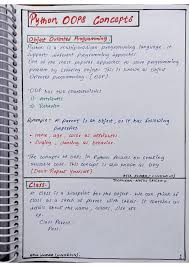 Python OOPs Concepts
Object Oriented Programming
Python is a multiparadigm programming language, it
supports different programming approaches.
One of the most popular approaches to solve programming
problem by creating object. This is known as Object
Oriented programming - (OOP).
OOP has two characteristics
1) Attributes
2) Behavior
Synopsis: A parrot is an object, as it has following
properties
• name, age, color as attributes
• singing, dancing as behavior
The concept of OOPs in Python focuses on creating
reusable code. This concept is also known as DRY
(Don't Repeat Yourself)
Class-
A class is a blueprint for the object. We can think of
class as a sketch of parrot with labels. It contains all
details about the name, colors, size etc.
eg.
Class Parrot:
Pass